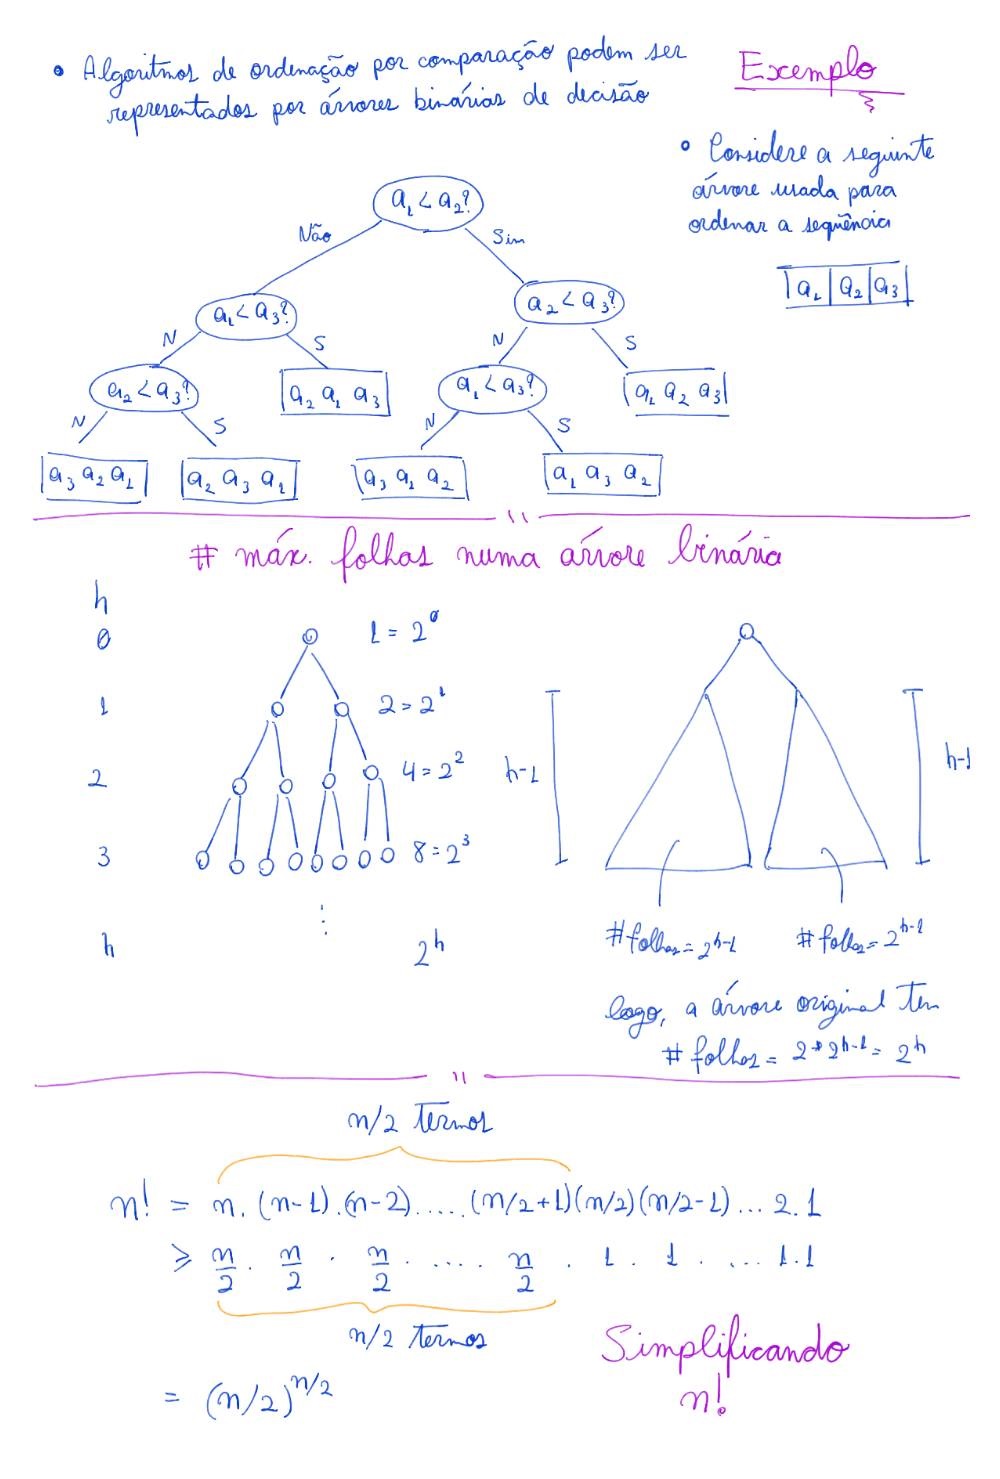 • Algoritmos de ordenação por comparação podem ser
representados por árvores binárias de decisão
Exemplo
• Considere a seguinte
árvore usada para
ordenar a sequência
a₁ a₂ a₃
a₁ < a₂?
Não Sim
a₁ < a₃? a₂ < a₃?
N S N S
a₂ < a₃? a₂ a₁ a₃ a₁ < a₃? a₁ a₂ a₃
N S N S
a₃ a₂ a₁ a₂ a₃ a₁ a₃ a₁ a₂ a₁ a₃ a₂
# máx. folhas numa árvore binária
h
0 1 = 2⁰
1 2 = 2¹
2 4 = 2²
3 8 = 2³
⋮
h 2ʰ
h-1 h-1
#folhas = 2ʰ⁻¹ # folhas = 2ʰ⁻¹
logo, a árvore original tem
# folhas = 2 * 2ʰ⁻¹ = 2ʰ
n/2 termos
n! = n . (n-1) . (n-2) ..... (n/2+1)(n/2)(n/2-1) ... 2 . 1
≥ n/2 . n/2 . n/2 . .... n/2 . 1 . 1 . ... 1 . 1
n/2 termos
= (n/2)^(n/2)
Simplificando
n!